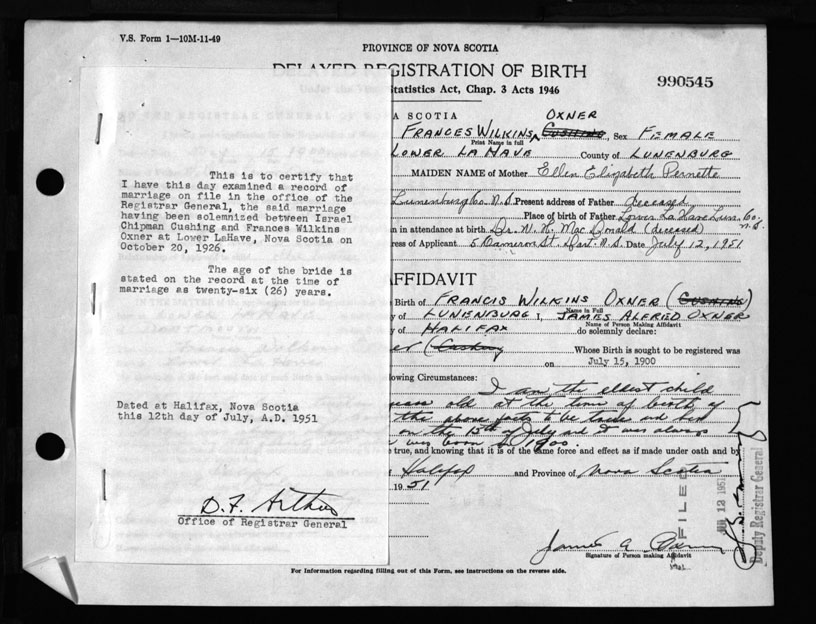 V.S. Form 1—10M-11-49
PROVINCE OF NOVA SCOTIA
DELAYED REGISTRATION OF BIRTH
990545
Statistics Act, Chap. 3 Acts 1946
A SCOTIA OXNER
FRANCES WILKINS CUSHING, Sex FEMALE
Print Name in full
LOWER LA HAVE County of LUNENBURG
MAIDEN NAME of Mother Ellen Elizabeth Pernette
Lunenburg Co. N.S. Present address of Father deceased
Place of birth of Father Lower La Have Lun. Co. N.S.
n in attendance at birth Dr. W. H. MacDonald (deceased)
ress of Applicant 5 Dameron St. Dart. N.S. Date July 12, 1951
AFFIDAVIT
Birth of FRANCIS WILKINS OXNER (CUSHING)
Name in Full
y of LUNENBURG I, JAMES ALFRED OXNER
Name of Person Making Affidavit
y of HALIFAX do solemnly declare:
er (Cushing Whose Birth is sought to be registered was
on July 15, 1900
lowing Circumstances:
I am the eldest child
years old at the time of birth of
the above facts to be true and that
on the 15th of July and I was always
was born in 1900
e true, and knowing that it is of the same force and effect as if made under oath and by
Halifax and Province of Nova Scotia
1951
James A
Signature of Person making Affidavit
FILED
12 1951
Deputy Registrar General
This is to certify that
I have this day examined a record of
marriage on file in the office of the
Registrar General, the said marriage
having been solemnized between Israel
Chipman Cushing and Frances Wilkins
Oxner at Lower LaHave, Nova Scotia on
October 20, 1926.
The age of the bride is
stated on the record at the time of
marriage as twenty-six (26) years.
Dated at Halifax, Nova Scotia
this 12th day of July, A.D. 1951
D. F. Arthur
Office of Registrar General
For Information regarding filling out of this Form, see instructions on the reverse side.